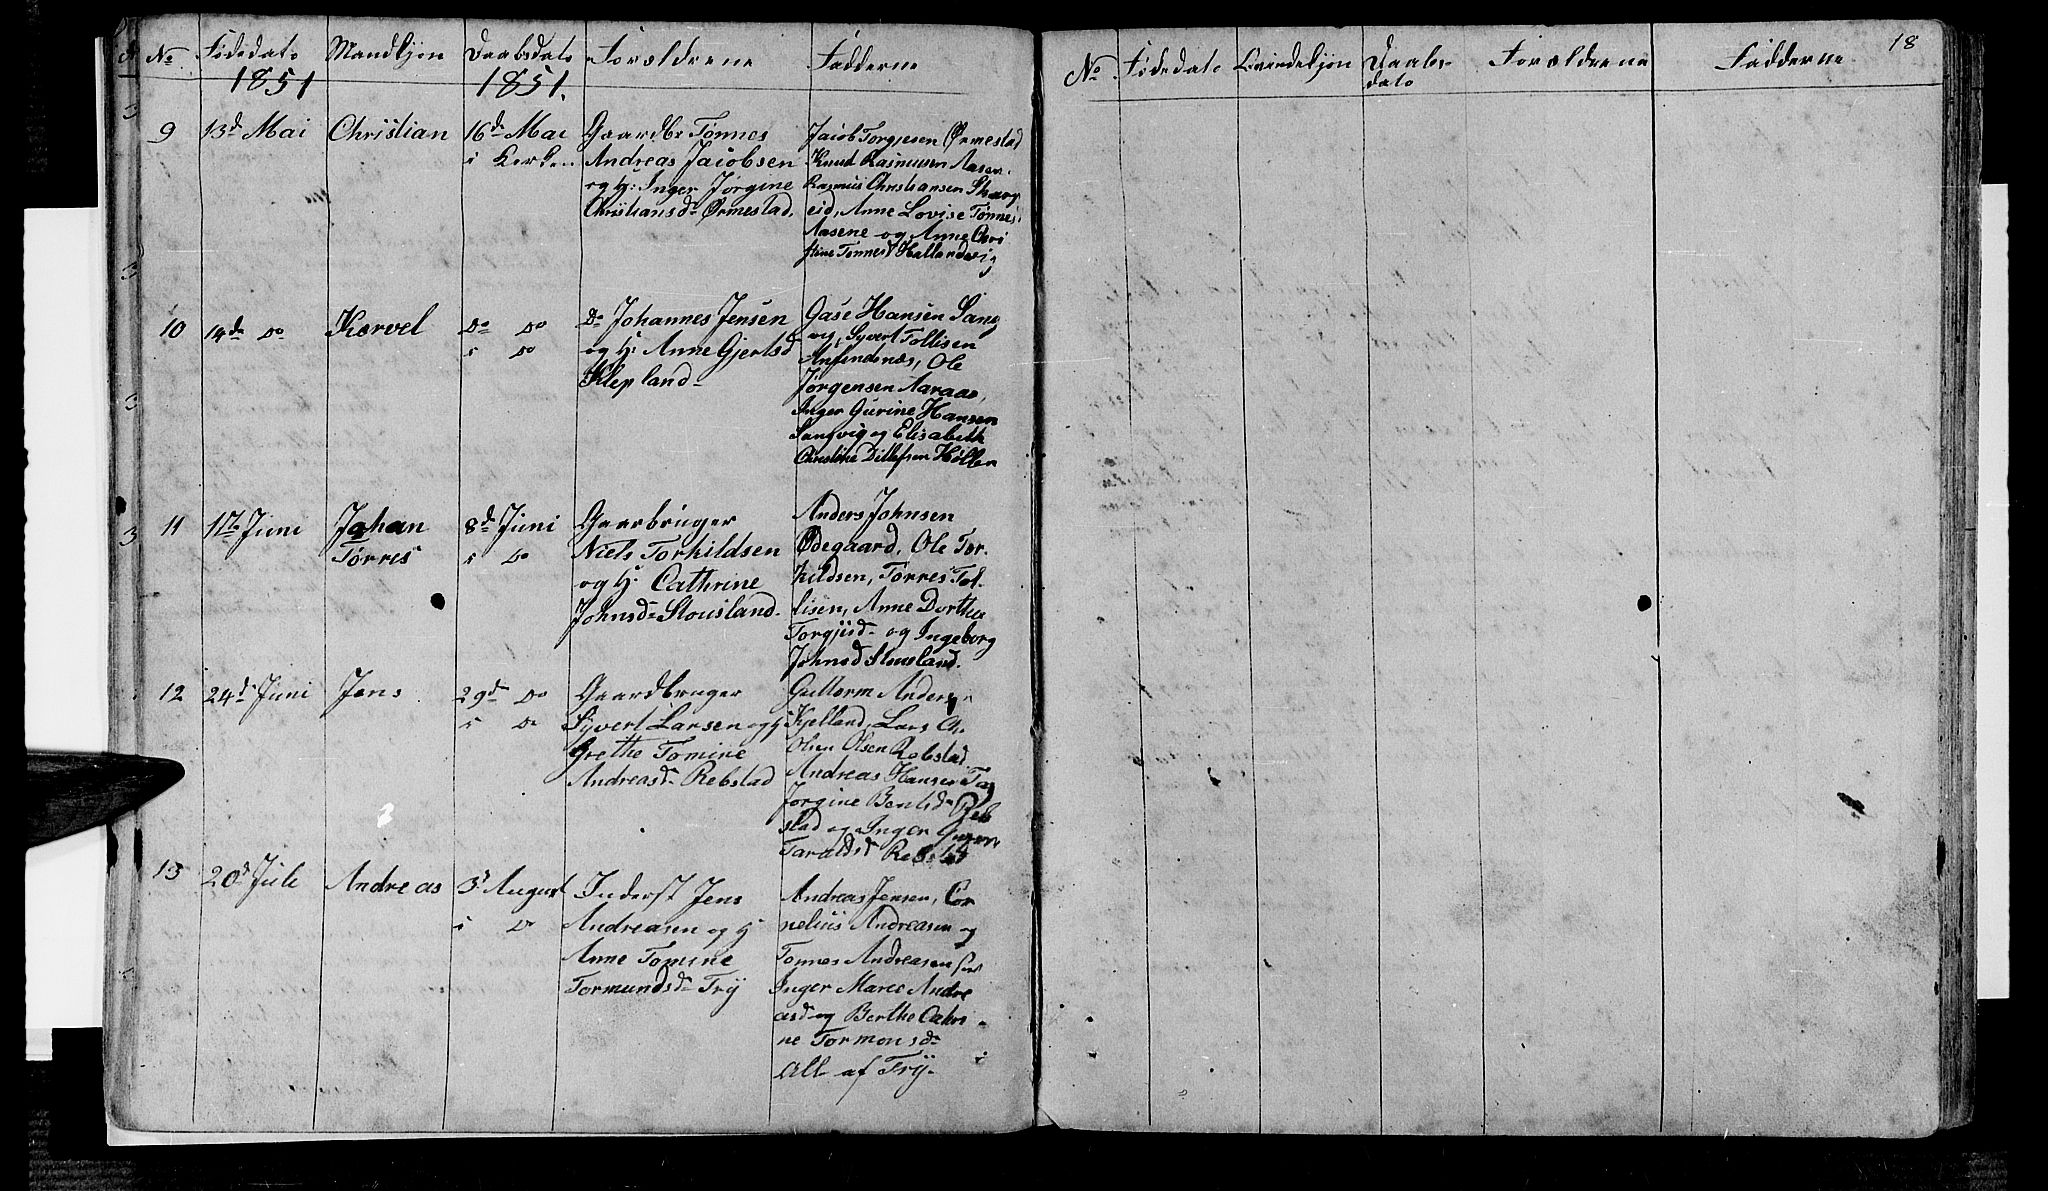 No Fødedato Mandkjøn Daabsdato Forældrene Fadderne
1851 1851.
9 13d Mai Christian 16d Mai Gaardbr Tønnes
i Kerken Andreas Jacobsen
og H: Inger Jørgine
Christiansd Ørmestad.
Jacob Torgjesen Ørmestad
Knud Rasmusen Aasen.
Rasmus Christiansen Skarp
eid, Anne Lovise Tønnes.
Aasene og Anne Chri
stine Tønnesd Hallandvig
10 14d Do Korvel Do Do Do Johannes Jensen
i Do og H: Anne Gjertsd
Klepland
Gase Hansen Sang
vg, Syvert Tollisen
Anfindsnæs, Ole
Jørgensen Aaraas,
Inger Gurine Hansen
Sangvig og Elisabeth
Christine Ditlefsen Høllen
11 1ste Juni Johan 8d Juni Gaarbruger
Tørres i Do Niels Torkildsen
og H: Cathrine
Johnsd Stousland
Anders Johnsen
Ødegaard, Ole Tor-
kildsen, Tørres Tol-
lisen, Anne Dorthea
Torgjusd og Ingeborg
Johnsd Stousland.
12 24d Juni Jens 29d Do Gaardbruger
i Do Syvert Larsen og H
Grethe Tomine
Andreasd Rebstad
Guttorm Anders
Kjelland, Lars Ch.
Olsen Rebstad
Andreas Hansen
Jørgine Bentsd Reb
stad og Inger
Taraldsd Rebstad
13 20d Juli Andreas 3d August Inderst Jens
i Do Andreasen og H
Anne Tomine
Tormundsd Try
Andreas Jensen, Cor
nelius Andreasen og
Tønnes Andreasen
Inger Maree Andre
asd og Berthe Cathri
ne Tormonsd
All af Try.
18
No Fødedato Qvindekjøn Daabs- Forældrene Fadderne
dato